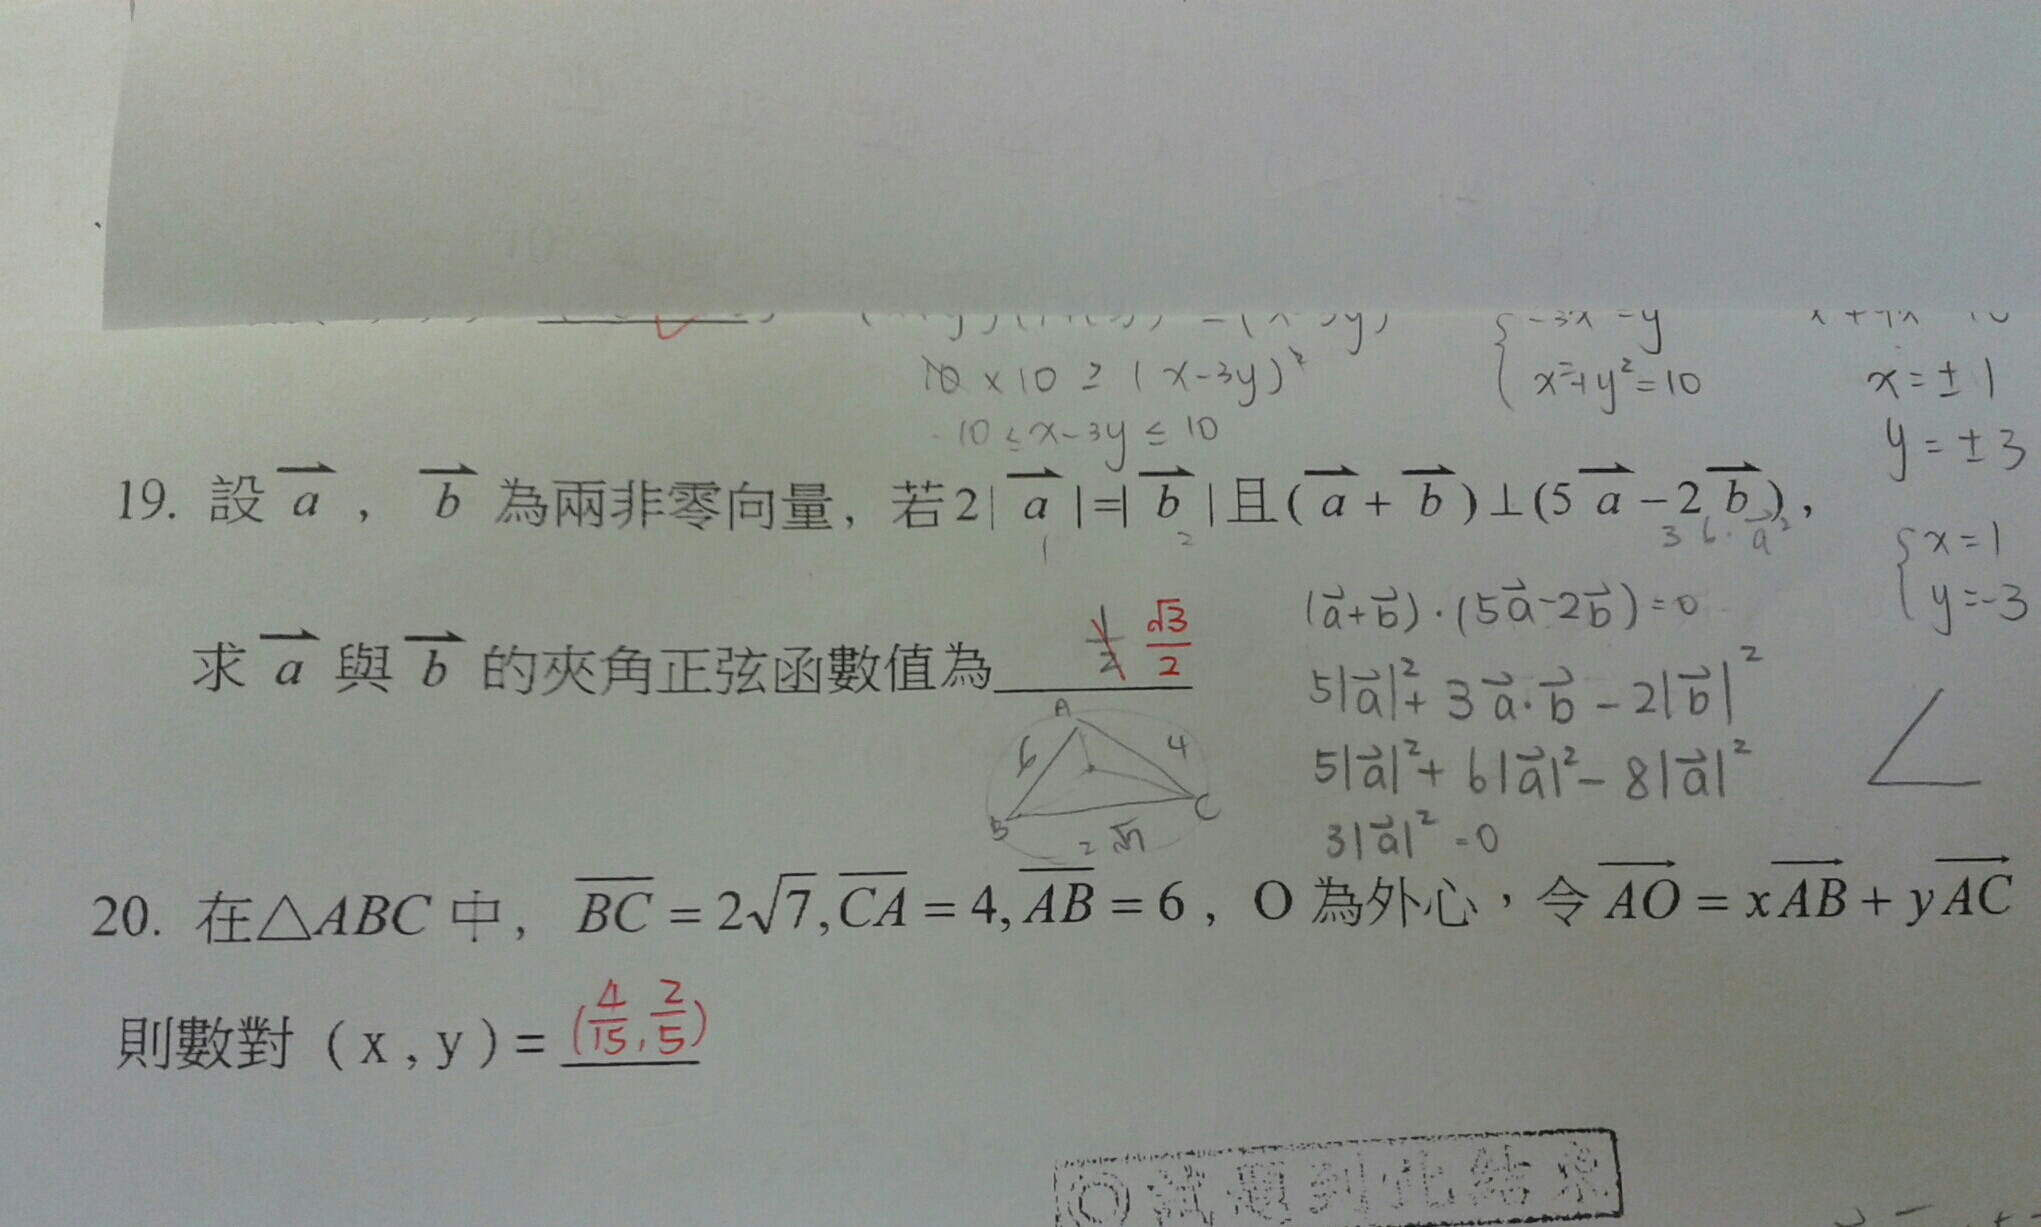 10 × 10 ≥ (x-3y)²
-10 ≤ x-3y ≤ 10
x²+y²=10
x=±1
y=±3
19. 設 a⃗ , b⃗ 為兩非零向量, 若 2| a⃗ |=| b⃗ | 且 ( a⃗ + b⃗ )⊥(5 a⃗ -2 b⃗ ),
1 2
{x=1
y=-3
求 a⃗ 與 b⃗ 的夾角正弦函數值為 1/2 √3/2
(a⃗+b⃗)·(5a⃗-2b⃗)=0
5|a⃗|²+3a⃗·b⃗-2|b⃗|²
5|a⃗|²+6|a⃗|²-8|a⃗|²
3|a⃗|²=0
A
6 4
B C
2√7
20. 在△ABC 中, BC = 2√7, CA = 4, AB = 6, O 為外心,令 AO = xAB + yAC
則數對 ( x , y ) = (4/15, 2/5)